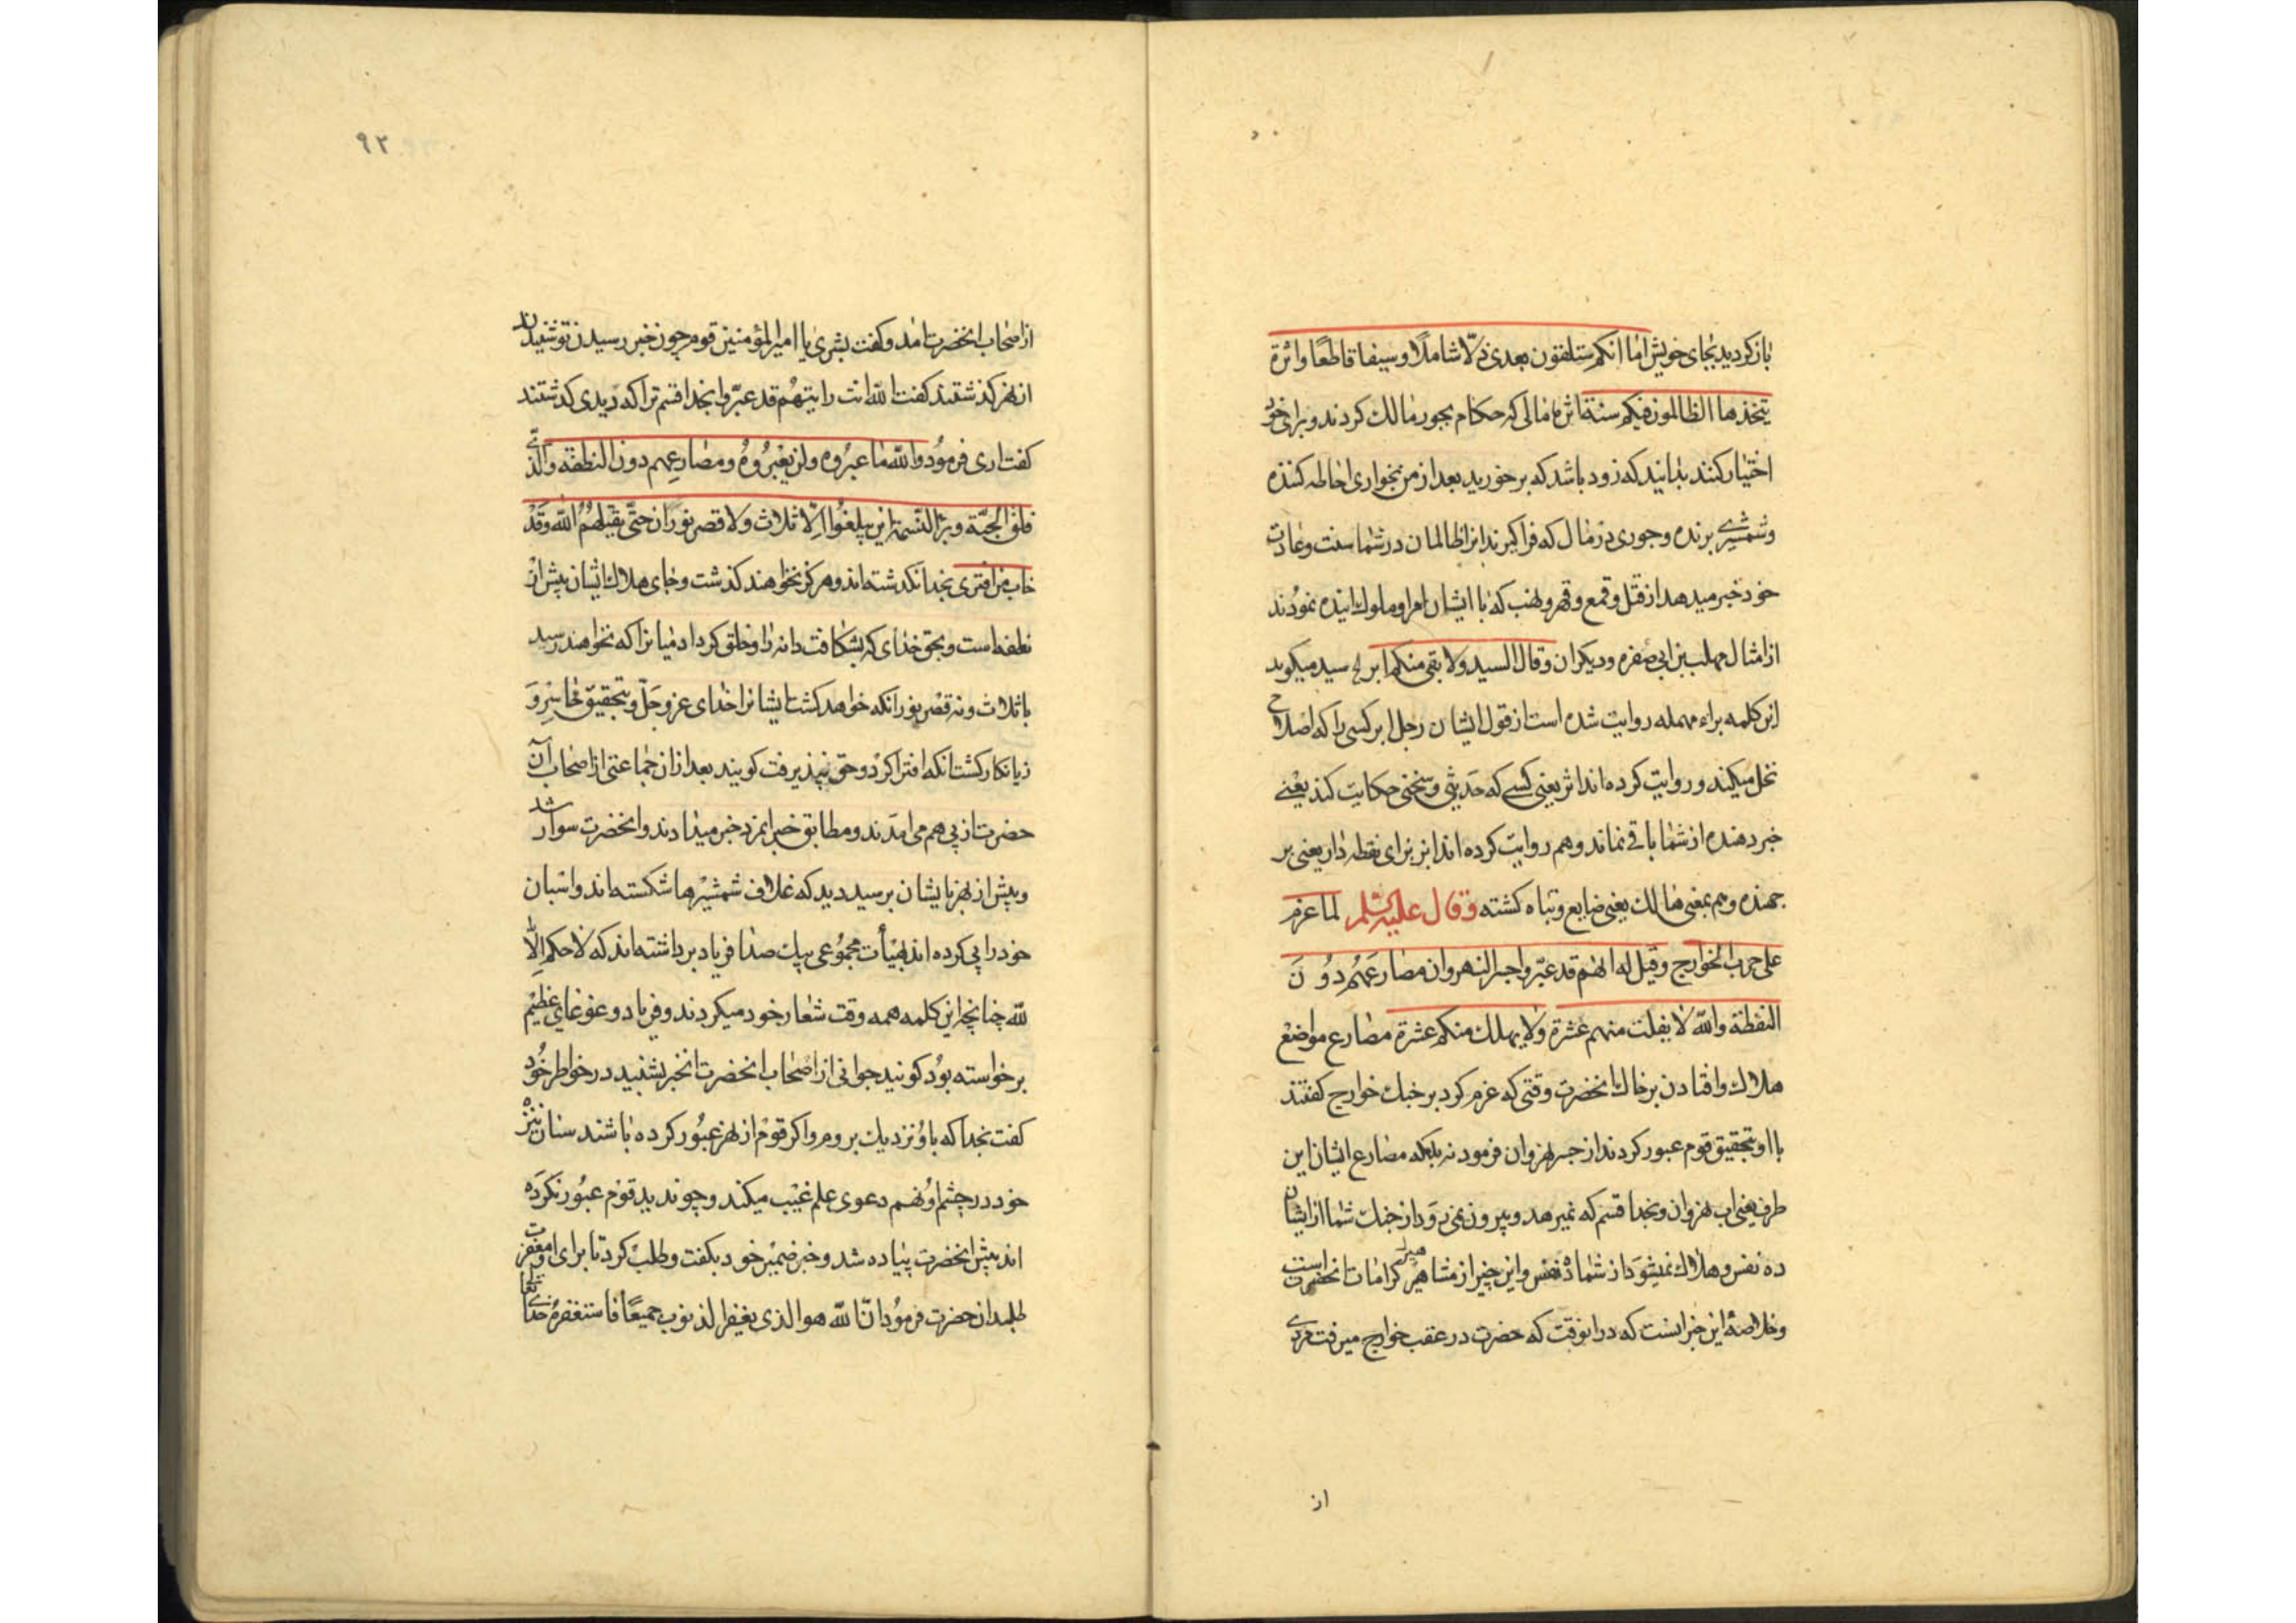 باز کردید بجای خویش اما انکم ستلقون بعدی ذلّا شاملًا و سیفا قاطعًا واثرة
یتخذها الظالمون فیکم سنة اثرة مالی که حکام بجور مالک کردند و برای خود
اختیار کنند بدانید که زود باشد که برخورید بعد از من بخواری احاطه کننده
و شمشیر برنده و جوری در مال که فراکیرند انرا ظالمان در شما سنت و عادت
خود خبر میدهد از قتل و قمع و قهر و نهب که با ایشان امرا و ملوک اینده نمودند
از امثال مهلب بن ابی صفره و دیکران و قال السید ولا بقی منکم ابر الخ سید میکوید
این کلمه براء مهمله روایت شده است از قول ایشان رجل ابر کسی را که اصلاح
نخل میکند و روایت کرده اند اثر یعنی کسی که حدیثی و سخنی حکایت کند یعنی
خبر دهنده از شما باقی نماند و هم روایت کرده اند ابز بزای نقطه دار یعنی بر
جهنده و هم بمعنی هالک یعنی ضایع و تباه کشته و قال علیه السلم لما عزم
علی حرب الخوارج و قیل له انهم قد عبروا جسر النهروان مصارعهم دون
النطفة والله لا یفلت منهم عشرة ولا یهلک منکم عشرة مصارع مواضع
هلاک و افتادن بر خاک انحضرت وقتی که عزم کرد بر جنک خوارج کفتند
با او بتحقیق قوم عبور کردند از جسر نهروان فرمود نه بلکه مصارع ایشان این
طرف یعنی اب نهروان و بخدا قسم که نمیرهد و بیرون نمی رود از جنک شما از ایشان
ده نفس و هلاک نمیشود از شما ده نفس و این چیز از مشاهیر کرامات انحضرت است
و خلاصهٔ این خبر انست که در انوقت که حضرت در عقب خوارج میرفت مردی
از
٩٣
از اصحاب انحضرت امد و کفت بشری یا امیر المؤمنین قوم چون خبر رسیدن تو شنیدند
از نهر کذشتند کفت الله انت رایتهم قد عبروا بخدا قسم ترا که دیدی کذشتند
کفت اری فرمود والله ما عبروه ولن یعبروه و مصارعهم دون النطفة والّذی
فلق الحبّة و برأ النسمة لن یبلغوا الّا ثلاث ولا قصر بوران حتّی یقتلهم الله وقد
خاب من افتری بخدا نکذشته اند و هرکز نخواهند کذشت و جای هلاک ایشان پیش از
نطفه است و بحق خدای که بشکافت دانه را و خلق کرد ادمیانرا که نخواهند رسید
باثلاث و نه قصر بوران که خواهد کشت ایشانرا خدای عز و جل و بتحقیق خاسر و
زیانکار کشت انکه افترا کرد و حق نپذیرفت کویند بعد از ان جماعتی از اصحاب آن
حضرت از پی هم می امدند و مطابق خبر انمرد خبر میدادند و انحضرت سوار شد
و پیش از نهر بایشان برسید دید که غلاف شمشیرها شکسته اند و اسبان
خود را پی کرده اند بهیأت مجموعی بیک صدا فریاد برداشته اند که لا حکم الّا
لله چنانچه این کلمه همه وقت شعار خود میکردند و فریاد و غوغای عظیم
برخواسته بود کویند جوانی از اصحاب انحضرت انخبر بشنید در خواطر خود
کفت بخدا که باو نزدیک بروم و اکر قوم از نهر عبور کرده باشند سنان نیزه
خود در چشم او نهم دعوی علم غیب میکند و چون دید قوم عبور نکرده
اند پیش انحضرت پیاده شد و خبر ضمیر خود بکفت و طلب کرد تا برای او مغفرت
طلبد ان حضرت فرمود انّ الله هو الذی یغفر الذنوب جمیعًا فاستغفره خدای تعا